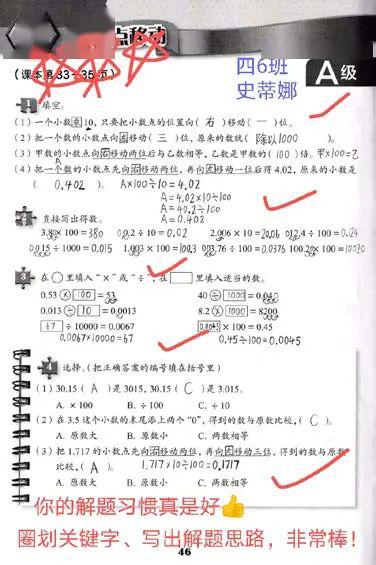 点移动
(课本第33~35页)
四6班
史蒂娜
A级
1 填空。
(1) 一个小数乘10,只要把小数点的位置向(右)移动(一)位。
(2) 把一个数的小数点向左移动(三)位,原来的数就(除以1000)。
(3) 甲数的小数点向右移动两位后与乙数相等,乙数是甲数的(100)倍。甲×100=乙
(4) 把一个数的小数点先向右移动两位,再向左移动一位后得4.02,原来的小数是
(0.402)。 A×100÷10=4.02
A=4.02×10÷100
A=40.2÷100
A=0.402
2 直接写出得数。
3.8×100=380 0.2÷10=0.02 2.006×10=20.06 2.4÷100=0.024
15÷1000=0.015 1.003×100=100.3 3.76÷100=0.0376
3 在○里填入“×”或“÷”,在□里填入适当的数。
0.53 × 100 = 53 40 ÷ 1000 = 0.040
0.013 ÷ 10 = 0.0013 8.2 × 1000 = 8200
67 ÷ 10000 = 0.0067 0.0045 × 100 = 0.45
0.0067×10000=67 0.45÷100=0.0045
4 选择。(把正确答案的编号填在括号里)
(1) 30.15(A)是3015,30.15(C)是3.015。
A. ×100 B. ÷100 C. ÷10
(2) 在3.5这个小数的末尾添上两个“0”,得到的数与原数比较,(C)。
A. 原数大 B. 原数小 C. 两数相等
(3) 把1.717的小数点先向右移动两位,再向左移动三位,得到的数与原数
比较,(A)。 1.717×10÷100=0.1717
A. 原数大 B. 原数小 C. 两数相等
你的解题习惯真是好👍
圈划关键字、写出解题思路,非常棒!
46